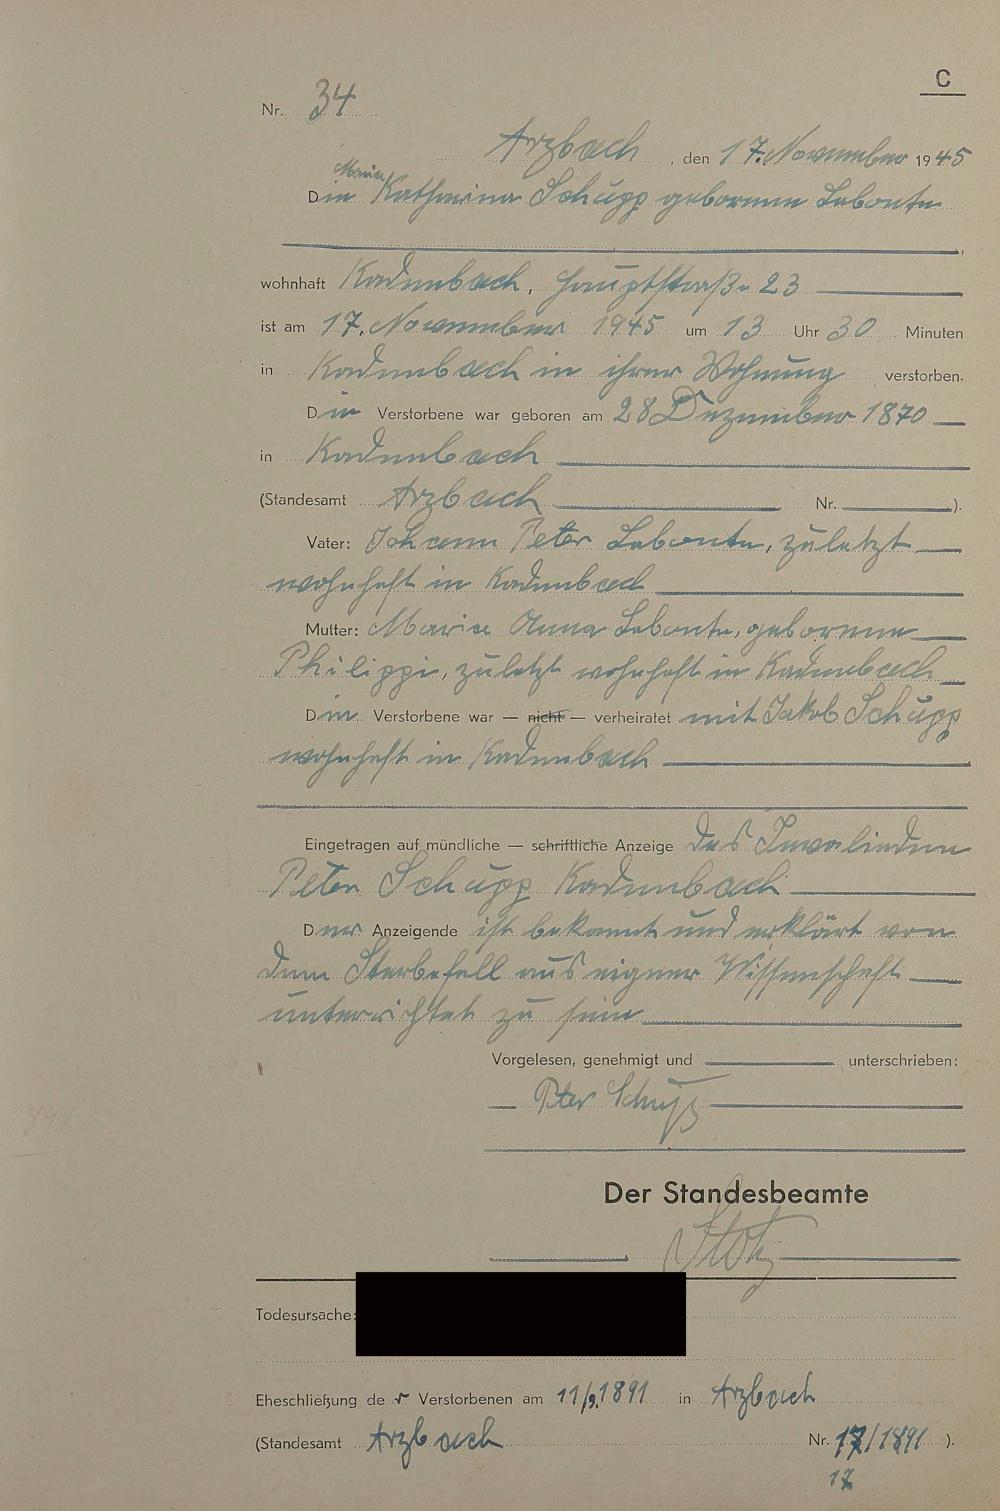 C
Nr. 34
Arzbach, den 17. November 1945
Maria
Die Katharina Schupp geborene Labonte
wohnhaft Kadenbach, Hauptstraße 23
ist am 17. November 1945 um 13 Uhr 30 Minuten
in Kadenbach in ihrer Wohnung verstorben.
Die Verstorbene war geboren am 28 Dezember 1870
in Kadenbach
(Standesamt Arzbach Nr. ).
Vater: Johann Peter Labonte, zuletzt
wohnhaft in Kadenbach
Mutter: Maria Anna Labonte, geborene
Philippi, zuletzt wohnhaft in Kadenbach
Die Verstorbene war — nicht — verheiratet mit Jakob Schupp
wohnhaft in Kadenbach
Eingetragen auf mündliche — schriftliche Anzeige des Invaliden
Peter Schupp Kadenbach
Der Anzeigende ist bekannt und erklärt von
dem Sterbefall aus eigner Wissenschaft
unterrichtet zu sein
Vorgelesen, genehmigt und unterschrieben:
Peter Schupp
Der Standesbeamte
Todesursache:
Eheschließung der Verstorbenen am 11/9.1891 in Arzbach
(Standesamt Arzbach Nr. 17/1891 ).
17